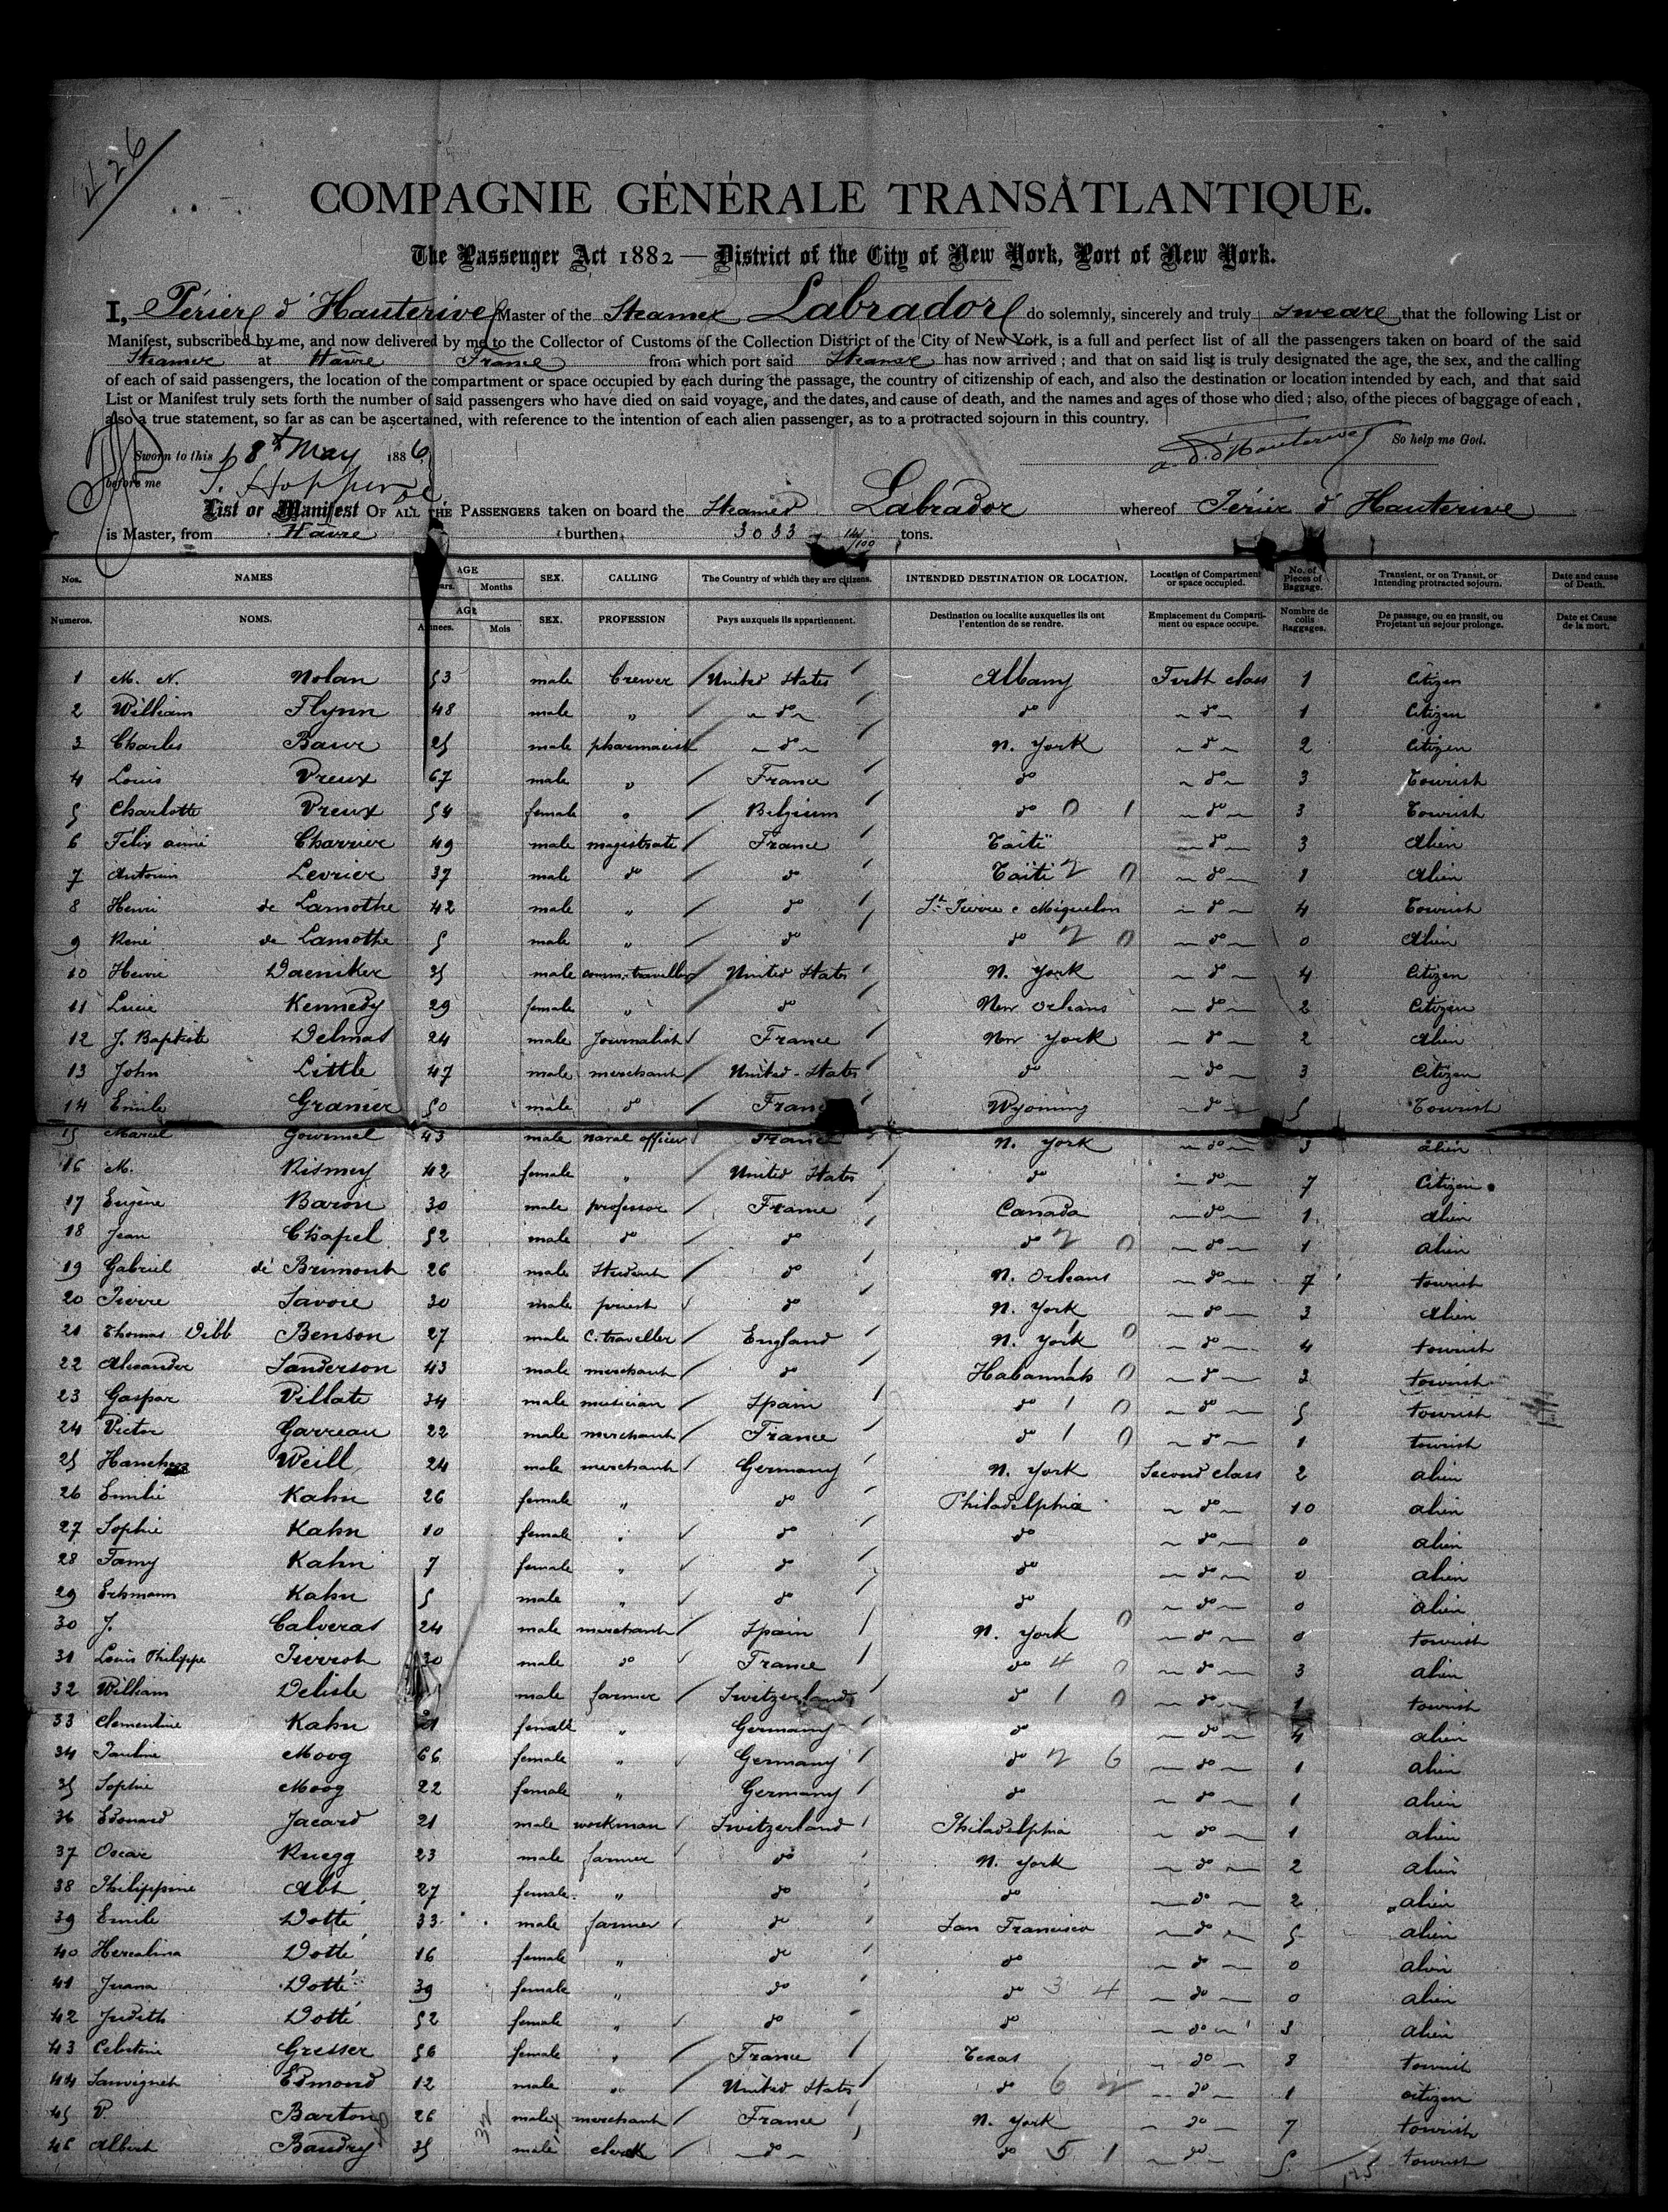 426
COMPAGNIE GÉNÉRALE TRANSATLANTIQUE.
The Passenger Act 1882 — District of the City of New York, Port of New York.
I, Périer d'Hauterive Master of the Steamer Labrador do solemnly, sincerely and truly sweare that the following List or
Manifest, subscribed by me, and now delivered by me to the Collector of Customs of the Collection District of the City of New York, is a full and perfect list of all the passengers taken on board of the said
Steamer at Hâvre France from which port said Steamer has now arrived; and that on said list is truly designated the age, the sex, and the calling
of each of said passengers, the location of the compartment or space occupied by each during the passage, the country of citizenship of each, and also the destination or location intended by each, and that said
List or Manifest truly sets forth the number of said passengers who have died on said voyage, and the dates, and cause of death, and the names and ages of those who died; also, of the pieces of baggage of each,
also a true statement, so far as can be ascertained, with reference to the intention of each alien passenger, as to a protracted sojourn in this country.
Sworn to this 8th May 1886 a. P. d'Hauterive So help me God.
before me
List or Manifest OF ALL THE PASSENGERS taken on board the Steamer Labrador whereof Périer d'Hauterive
is Master, from Hâvre burthen 3033 tons.
Nos. NAMES AGE Years. Months SEX. CALLING The Country of which they are citizens. INTENDED DESTINATION OR LOCATION. Location of Compartment or space occupied. No. of Pieces of Baggage. Transient, or on Transit, or Intending protracted sojourn. Date and cause of Death.
Numeros. NOMS. AGE Années. Mois SEX. PROFESSION Pays auxquels ils appartiennent. Destination ou localite auxquelles ils ont l'entention de se rendre. Emplacement du Compartiment ou espace occupe. Nombre de colis Baggages. De passage, ou en transit, ou Projetant un sejour prolonge. Date et Cause de la mort.
1 M. N. Nolan 53 male brewer United States Albany First class 1 Citizen
2 William Flynn 48 male " do do do 1 Citizen
3 Charles Baur 25 male pharmacist do N. York do 2 Citizen
4 Louis Vreux 67 male " France do do 3 Tourist
5 Charlotte Vreux 54 female " Belgium do 0 1 do 3 Tourist
6 Félix aimé Charrier 49 male magistrate France Taïti do 3 Alien
7 Antonin Levrier 37 male do do Taïti 2 0 do 1 Alien
8 Henri de Lamothe 42 male " do St Pierre & Miquelon do 4 Tourist
9 René de Lamothe 5 male " do do 2 0 do 0 Alien
10 Henri Daeniker 35 male comm. traveller United States N. York do 4 Citizen
11 Lucie Kennedy 29 female " do New Orleans do 2 Citizen
12 J. Baptiste Delmas 24 male Journalist France New York do 2 Alien
13 John Little 47 male merchant United-States do do 3 Citizen
14 Emile Granier 50 male do France Wyoming do 5 Tourist
15 Marcel Gourmel 43 male naval officer France N. York do 3 alien
16 M. Rismey 42 female " United States do do 7 Citizen
17 Eugène Baron 30 male professor France Canada do 1 Alien
18 Jean Chapel 52 male do do do 2 0 do 1 alien
19 Gabriel de Brimont 26 male Student do N. Orleans do 7 tourist
20 Pierre Savoie 30 male priest do N. York do 3 Alien
21 Thomas Dibb Benson 27 male C. traveller England N. York 1 0 do 4 tourist
22 Alexander Sanderson 43 male merchant do Habannah 1 0 do 2 tourist
23 Gaspar Villate 34 male musician Spain do 1 0 do 5 tourist
24 Victor Garreau 22 male merchant France do 1 0 do 1 tourist
25 Weill 24 male merchant Germany N. York Second class 2 alien
26 Emilie Kahn 26 female " do Philadelphia do 10 alien
27 Sophie Kahn 10 female " do do do 0 alien
28 Famy Kahn 7 female " do do do 0 alien
29 Erkmann Kahn 5 male " do do do 0 alien
30 J. Calveras 24 male merchant Spain N. York 1 0 do 0 tourist
31 Louis Philippe Pierrot 30 male do France do 4 0 do 3 alien
32 William Delisle male farmer Switzerland do 1 0 do 1 tourist
33 Clementine Kahn 21 female " Germany do do 4 alien
34 Pauline Moog 66 female " Germany do 2 6 do 1 alien
35 Sophie Moog 22 female " Germany do do 1 alien
36 Edouard Jacard 21 male workman Switzerland Philadelphia do 1 alien
37 Oscar Ruegg 23 male farmer do N. York do 2 alien
38 Philippine Abt 27 female " do do do 2 alien
39 Emile Dotté 33 male farmer do San Francisco do 5 alien
40 Hercalina Dotté 16 female " do do do 0 alien
41 Juana Dotté 39 female " do do 3 4 do 0 alien
42 Judith Dotté 52 female " do do do 3 alien
43 Celestine Gresser 56 female " France Texas do 8 tourist
44 Sauvignet Edmond 12 male " United States do 6 2 do 1 citizen
45 P. Barton 26 male merchant France N. York do 7 tourist
46 Albert Baudry 35 male clerck do do 5 1 do 5 tourist